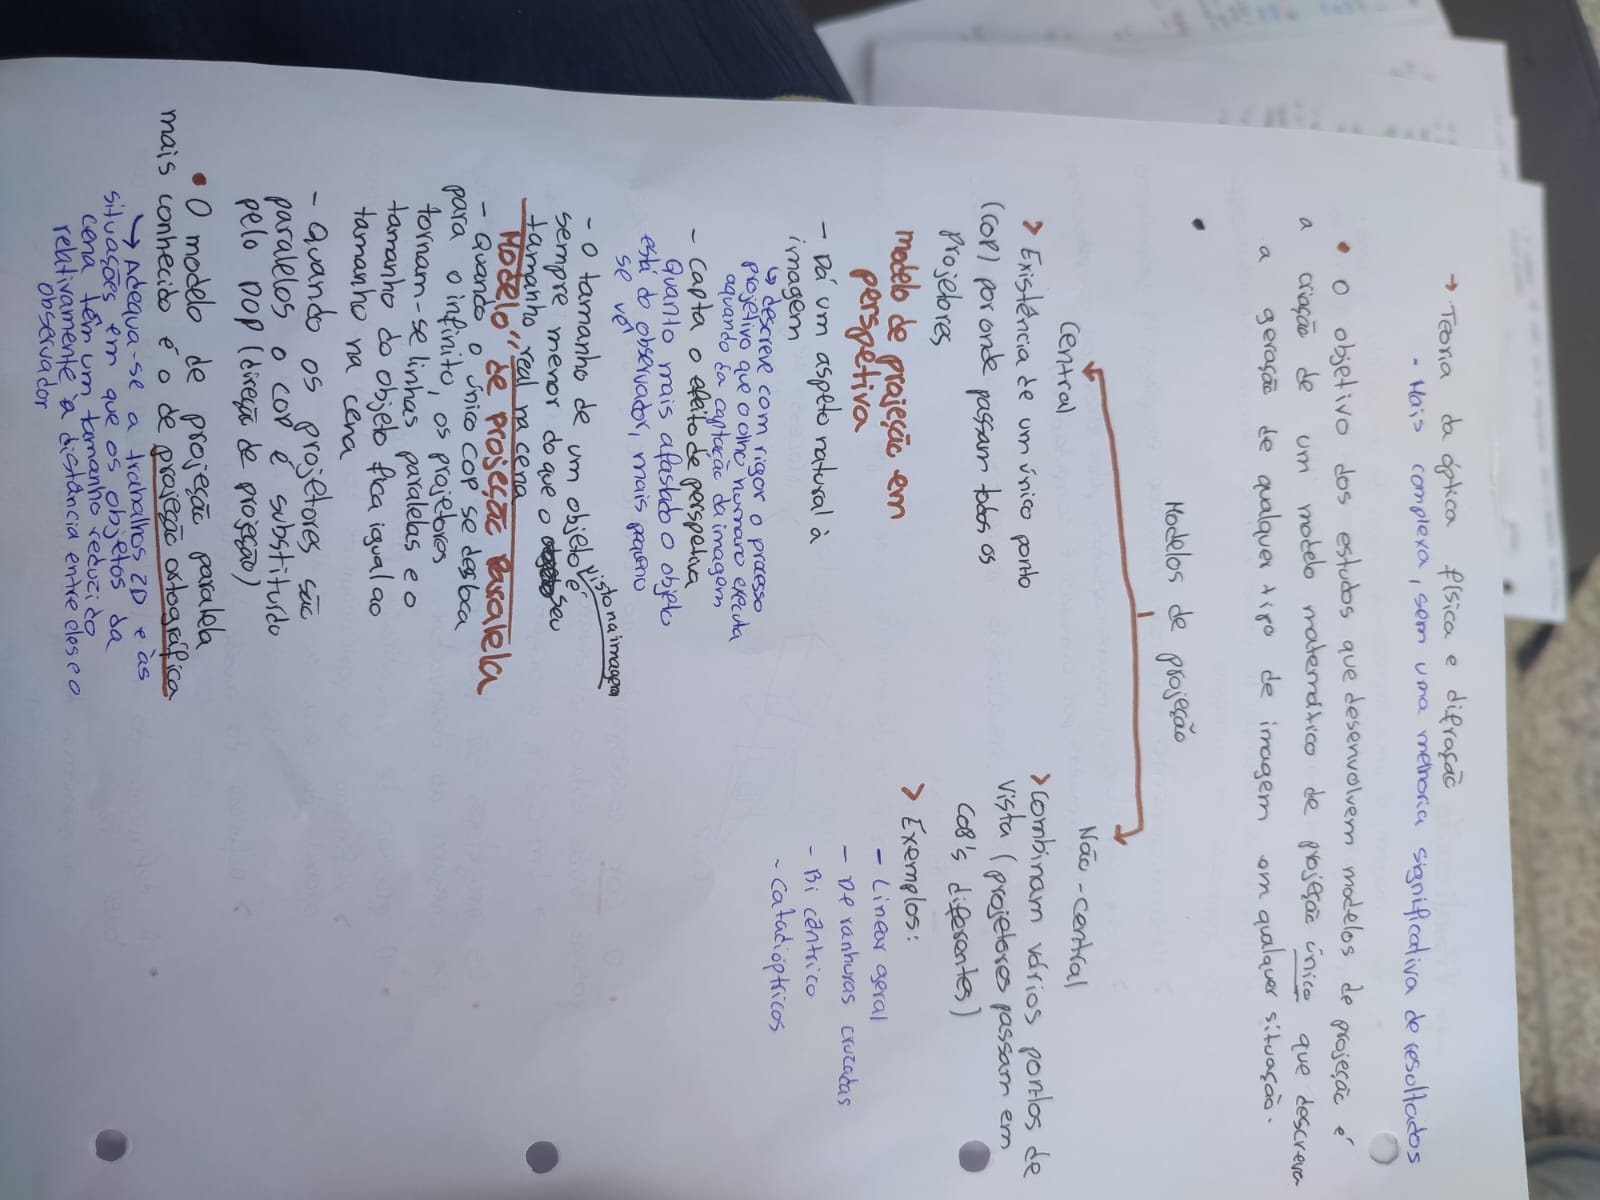 → Teoria da óptica física e difração
- Mais complexa, sem uma melhoria significativa de resultados
• O objetivo dos estudos que desenvolvem modelos de projeção é
a criação de um modelo matemático de projeção único que descreva
a geração de qualquer tipo de imagem em qualquer situação.
•
Modelos de projeção
Central
> Existência de um único ponto
(COP) por onde passam todos os
projetores
modelo de projeção em
perspetiva
- Dá um aspeto natural à
imagem
↳ descreve com rigor o processo
projetivo que o olho humano executa
aquando da captação da imagem
- Capta o efeito de perspetiva
Quanto mais afastado o objeto
está do observador, mais pequeno
se vê
- O tamanho de um objeto visto na imagem é
sempre menor do que o seu
tamanho real na cena
Modelo" de projeção Paralela
- Quando o único COP se desloca
para o infinito, os projetores
tornam-se linhas paralelas e o
tamanho do objeto fica igual ao
tamanho na cena
- Quando os projetores são
paralelos o COP é substituído
pelo DOP (direção de projeção)
• O modelo de projeção paralela
mais conhecido é o de projeção ortográfica
↳ Adequa-se a trabalhos 2D e às
situações em que os objetos da
cena têm um tamanho reduzido
relativamente à distância entre eles e o
observador
Não-central
> Combinam vários pontos de
vista (projetores passam em
COB's diferentes)
> Exemplos:
- Linear geral
- De ranhuras cruzadas
- Bi cêntrico
- Catadióptricos